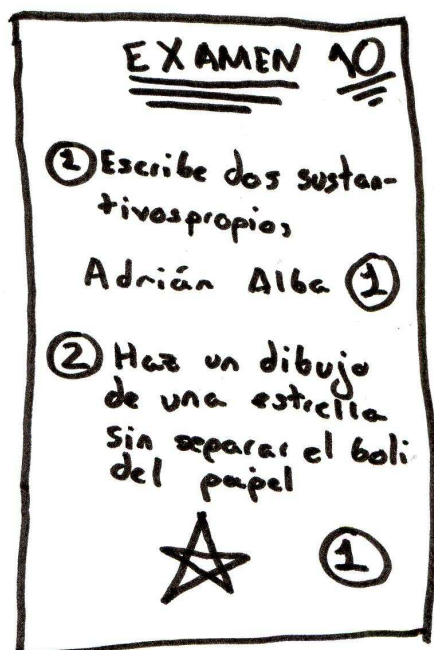 EXAMEN 10
② Escribe dos sustan-
tivos propios
Adrián Alba ①
② Haz un dibujo
de una estrella
sin separar el boli
del papel
①